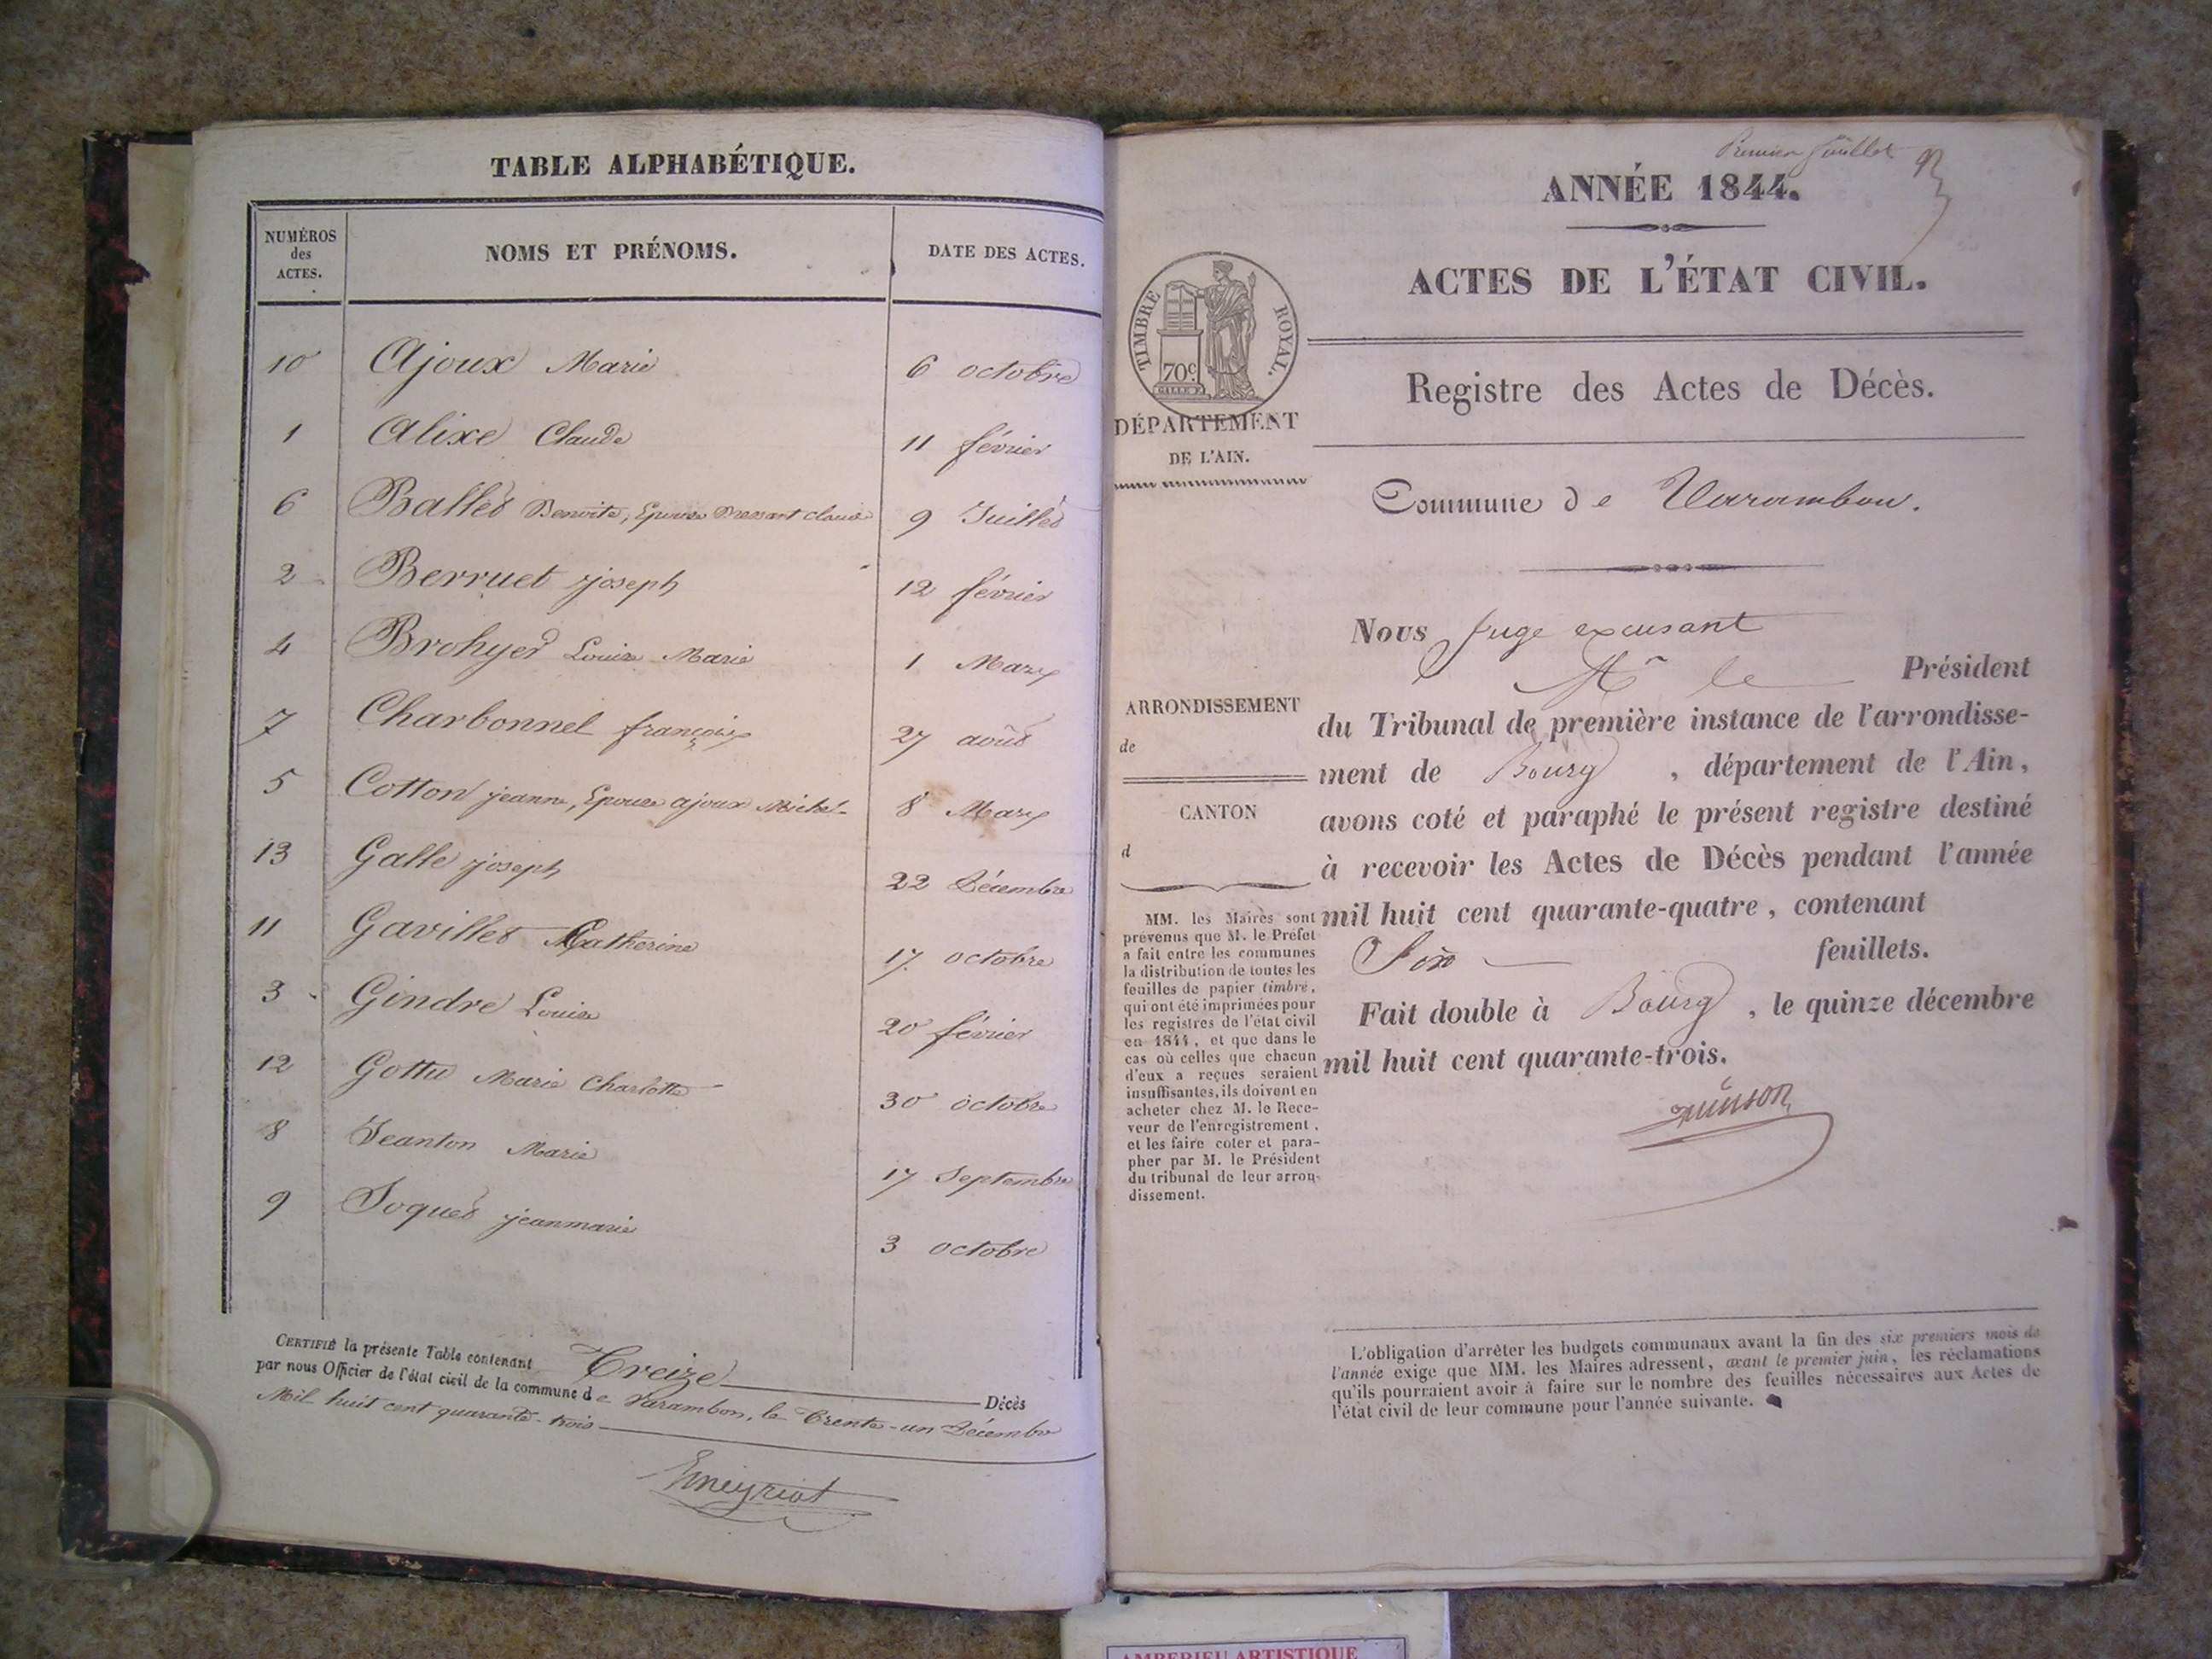 TABLE ALPHABÉTIQUE.
NUMÉROS
des
ACTES.
NOMS ET PRÉNOMS.
DATE DES ACTES.
10 Ajoux Marie 6 octobre
1 Alixe Claude 11 février
6 Ballet Benoite, Epouse Claude 9 Juillet
2 Berruet joseph 12 février
4 Brohyer Louise Marie 1 Mars
7 Charbonnel françois 27 août
5 Cotton jeanne, Epouse ajoux Michel 8 Mars
13 Galle joseph 22 Décembre
11 Gavillet Catherine 17 octobre
3 Gindre Louise 20 février
12 Gottu Marie Charlotte 30 octobre
8 Jeanton Marie 17 Septembre
9 Joquet jeanmarie 3 octobre
CERTIFIÉ la présente Table contenant Treize Décès
par nous Officier de l'état civil de la commune de Varambon, le Trente-un Décembre
Mil huit cent quarante-trois
Premier feuillet
ANNÉE 1844.
ACTES DE L'ÉTAT CIVIL.
TIMBRE ROYAL.
70c
DÉPARTEMENT
DE L'AIN.
Registre des Actes de Décès.
Commune de Varambon.
Nous Juge excusant
Mr le Président
du Tribunal de première instance de l'arrondisse-
ment de Bourg, département de l'Ain,
avons coté et paraphé le présent registre destiné
à recevoir les Actes de Décès pendant l'année
mil huit cent quarante-quatre, contenant
Six feuillets.
Fait double à Bourg, le quinze décembre
mil huit cent quarante-trois.
ARRONDISSEMENT
de
CANTON
d
MM. les Maires sont
prévenus que M. le Préfet
a fait entre les communes
la distribution de toutes les
feuilles de papier timbré,
qui ont été imprimées pour
les registres de l'état civil
en 1844, et que dans le
cas où celles que chacun
d'eux a reçues seraient
insuffisantes, ils doivent en
acheter chez M. le Rece-
veur de l'enregistrement,
et les faire coter et para-
pher par M. le Président
du tribunal de leur arron-
dissement.
L'obligation d'arrêter les budgets communaux avant la fin des six premiers mois de
l'année exige que MM. les Maires adressent, avant le premier juin, les réclamations
qu'ils pourraient avoir à faire sur le nombre des feuilles nécessaires aux Actes de
l'état civil de leur commune pour l'année suivante.
AMBERIEU ARTISTIQUE